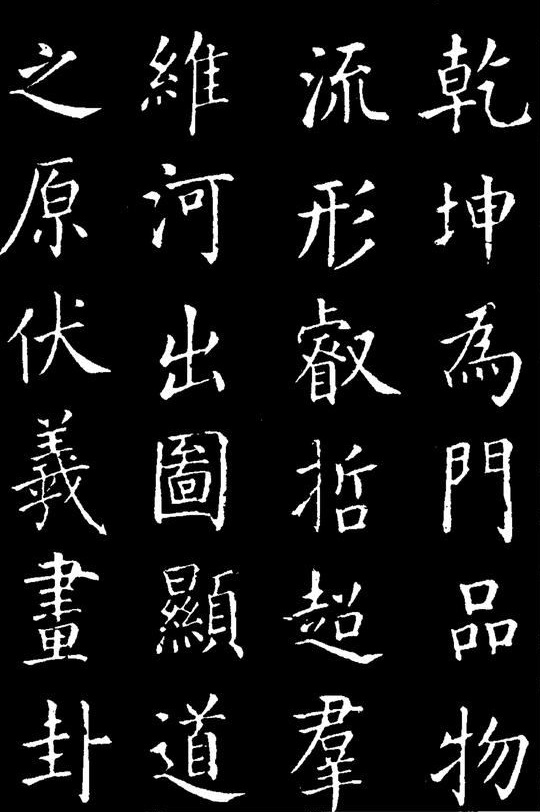 乾坤為門品物
流形叡哲超羣
維河出圖顯道
之原伏羲畫卦